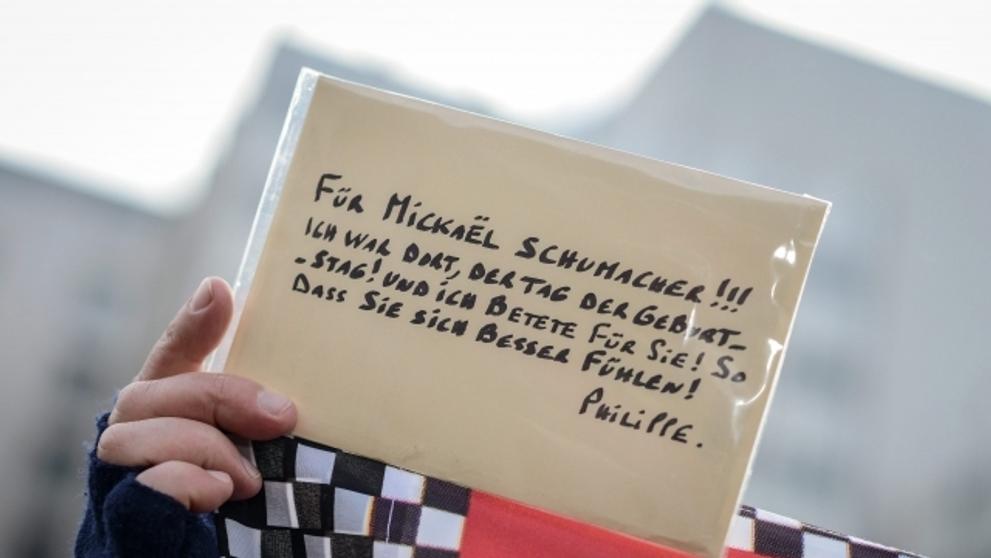 FÜR MICKAËL SCHUMACHER!!!
ICH WAR DORT, DER TAG DER GEBURT-
-STAG! UND ICH BETETE FÜR SIE! SO
DASS SIE SICH BESSER FÜHLEN!
PHILIPPE.